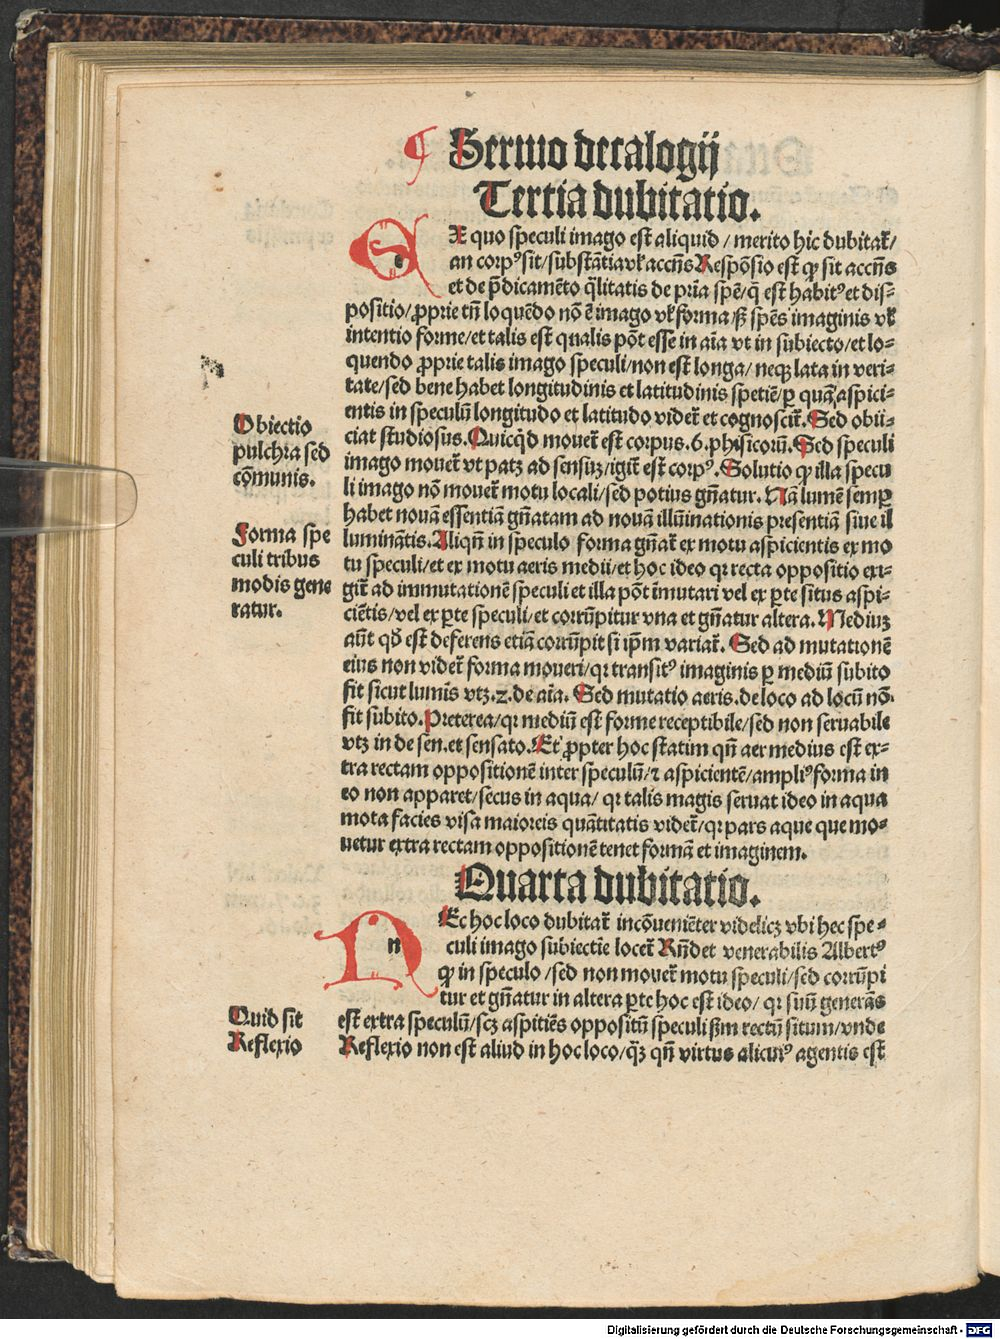 ¶ Sermo decalogij
Tertia dubitatio.
EX quo speculi imago est aliquid / merito hic dubitat̃/
an corpꝰ sit / substãtia vl̃ accñs Respõsio est ꝙ sit accñs
et de p̃dicamẽto q̃litatis de pria spẽ/ q̃ est habitꝰ et dis-
positio / ꝓprie tñ loquẽdo nõ ẽ imago vl̃ forma / sꝫ spẽs imaginis vl̃
intentio forme / et talis est qualis põt esse in aĩa vt in subiecto / et lo-
quendo ꝓprie talis imago speculi / non est longa / neqꝫ lata in veri-
tate / sed bene habet longitudinis et latitudinis spetiẽ / ꝑ quã aspici-
entis in speculũ longitudo et latitudo videt̃ et cognoscit̃. Sed obii-
ciat studiosus. Quicq̃d mouet̃ est corpus. 6. phisicorũ. Sed speculi
imago mouet̃ vt patꝫ ad sensuꝫ / igit̃ est corpꝰ. Solutio ꝙ illa specu
li imago nõ mouet̃ motu locali / sed potius gñatur. Nã lumẽ semꝑ
habet nouã essentiã gñatam ad nouã illũinationis presentiã siue il
luminãtis. Aliqñ in speculo forma gñat̃ ex motu aspicientis ex mo
tu speculi / et ex motu aeris medii / et hoc ideo qꝛ recta oppositio exi-
git̃ ad immutationẽ speculi et illa põt ĩmutari vel ex ꝑte situs aspi-
ciẽtis / vel ex ꝑte speculi / et corrũpitur vna et gñatur altera. Mediuꝫ
aũt qđ est deferens etiã corrũpit si ip̃m variat̃. Sed ad mutationẽ
eius non videt̃ forma moueri / qꝛ transitꝰ imaginis ꝑ mediũ subito
fit sicut lumĩs vtꝫ. 2. de aĩa. Sed mutatio aeris. de loco ad locũ nõ
fit subito. Preterea / qꝛ mediũ est forme receptibile / sed non seruabile
vtꝫ in de sen. et sensato. Et ꝓpter hoc statim qñ aer medius est ex-
tra rectam oppositionẽ inter speculũ / ⁊ aspicientẽ / ampliꝰ forma in
eo non apparet / secus in aqua / qꝛ talis magis seruat ideo in aqua
mota facies visa maioreis quãtitatis videt̃ / qꝛ pars aque que mo-
uetur extra rectam oppositionẽ tenet formã et imaginem.
Obiectio
pulchra sed
cõmunis.
Forma spe
culi tribus
modis gene
ratur.
Quarta dubitatio.
NEc hoc loco dubitat̃ incõueniẽter videlicꝫ vbi hec spe-
culi imago subiectie locet̃ Rñdet venerabilis Albertꝰ
ꝙ in speculo / sed non mouet̃ motu speculi / sed corrũpi
tur et gñatur in altera ꝑte hoc est ideo / qꝛ suũ generãs
est extra speculũ / scꝫ aspitiẽs oppositũ speculi ẜm rectũ situm / vnde
Reflexio non est aliud in hoc loco / q̃ꝫ qñ virtus alicuiꝰ agentis est
Quid sit
Reflexio
Digitalisierung gefördert durch die Deutsche Forschungsgemeinschaft - DFG